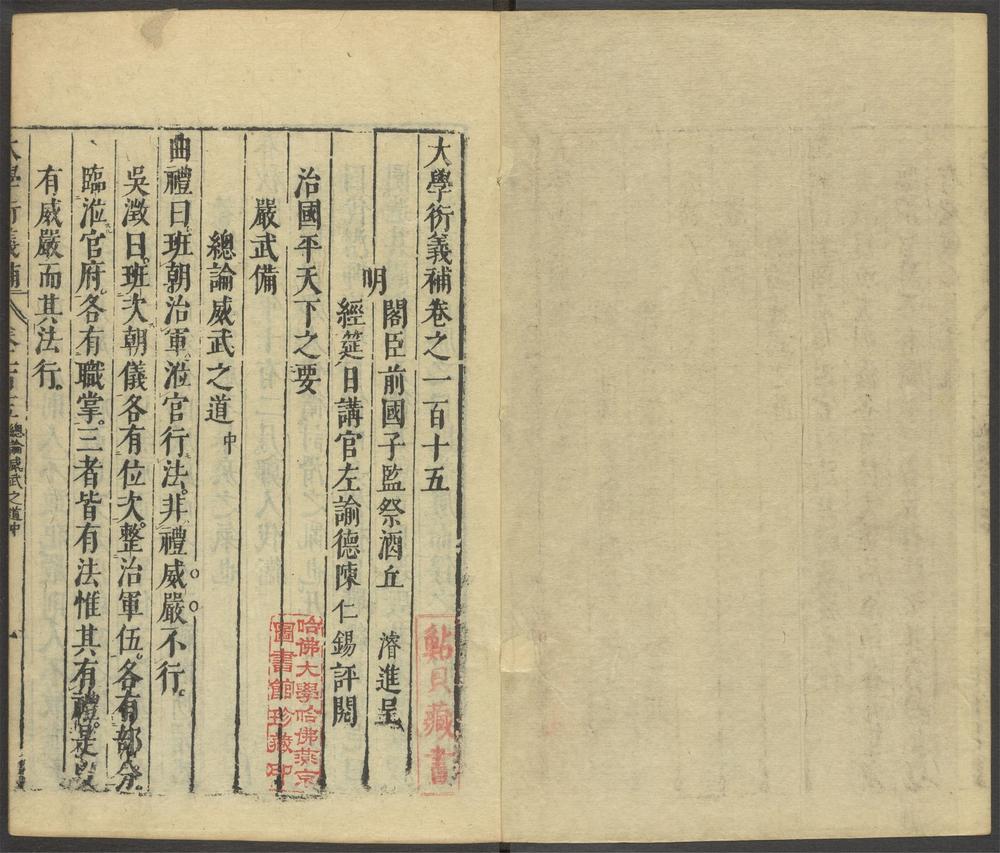 大學衍義補卷之一百十五
明
閣臣前國子監祭酒丘 濬進呈
經筵日講官左諭德陳仁錫評閱
治國平天下之要
嚴武備
總論威武之道中
曲禮曰班朝治軍涖官行法非禮威嚴不行。
吳澂曰班次朝儀各有位次。整治軍伍。各有部分。
臨涖官府。各有職掌。三者皆有法惟其有禮。是以
有威嚴而其法行。
大學衍義補
總論威武之道中
鮎貝藏書
哈佛大學哈佛燕京
圖書館珍藏印